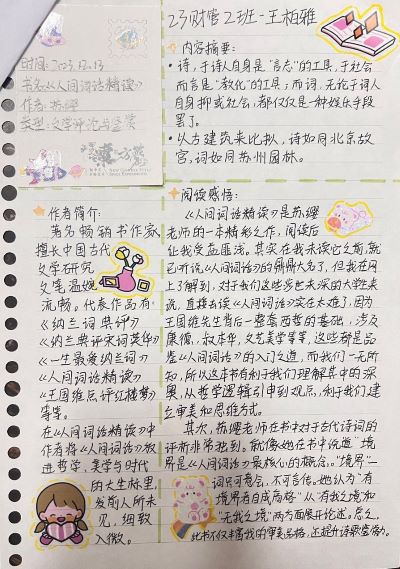 23财管2班-王柏雅
时间:2023.12.13
书名:《人间词话精读》
作者:苏缨
类型:文学评论与鉴赏
内容摘要:
·诗,于诗人自身是“言志”的工具,于社会
而言是“教化”的工具;而词,无论于词人
自身抑或社会,都仅仅是一种娱乐手段
罢了。
·以古建筑来比拟,诗如同北京故
宫,词如同苏州园林。
作者简介:
著名畅销书作家,
擅长中国古代
文学研究
文笔温婉
流畅。代表作品有:
《纳兰词典评》
《纳兰典评宋词英华》
《一生最爱纳兰词》
《人间词话精读》
《王国维点评红楼梦》
等等。
在《人间词话精读》中
作者将《人间词话》放
进哲学,美学与时代
的大坐标里,
发前人所未
见,细致
入微。
阅读感悟:
《人间词话精读》是苏缨
老师的一本精彩之作,阅读后
让我受益匪浅。其实在我未读它之前,就
已听说《人间词话》的鼎鼎大名了,但我在网
上了解到,对于我们这些初出茅庐的大学生来
说,直接去读《人间词话》实在太难了,因为
王国维先生背后一整套西哲的基础,涉及
康德,叔本华,文艺美学等等,这些都是品
鉴《人间词话》的入门之道,而我们一无所
知,所以这本书有利于我们理解其中的深
奥,从哲学逻辑引申到观点,利于我们建
立审美和思维方式。
其次,苏缨老师在书中对于古代诗词的
评析非常独到。就像她在书中说道“境
界是《人间词话》最核心的概念。“境界”一
词只可意会,不可言传。她认为“有
境界者自成高格”从“有我之境”和
“无我之境”两方面展开论述。总之,
此书不仅丰富我的审美品格,还提升诗歌鉴赏力。